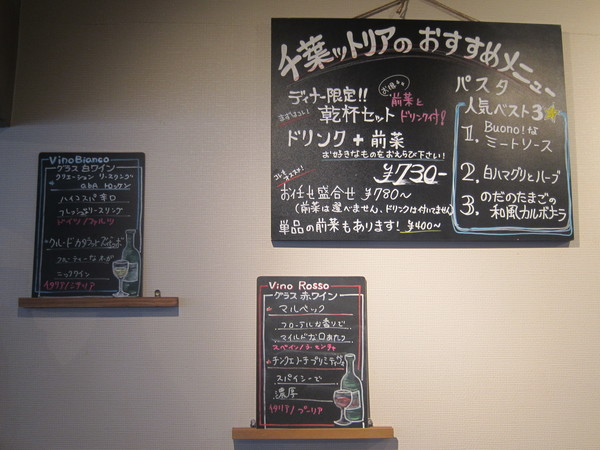 千葉ットリアのおすすめメニュー
ディナー限定!!
まずはコレ!
乾杯セット
お得
前菜と
ドリンク付!
ドリンク+前菜
お好きなものをおえらび下さい!
¥730-
お任せ盛合せ ¥780〜
(前菜は選べません、ドリンクは付けません)
単品の前菜もあります! ¥400〜
パスタ
人気ベスト3
1. Buono!な
ミートソース
2. 白ハマグリとハーブ
3. のだのたまごの
和風カルボナーラ
Vino Bianco
グラス 白ワイン
クリエーション リースリング
ハインスバ 辛口
フレッシュなリースリング
ドイツ/ファルツ
フルーティーな
イタリア/シチリア
Vino Rosso
グラス 赤ワイン
マルベック
フローラルな香りで
マイルドな口あたり
チンクエノーチ プリミティーヴォ
スパイシーで
濃厚
イタリア/プーリア